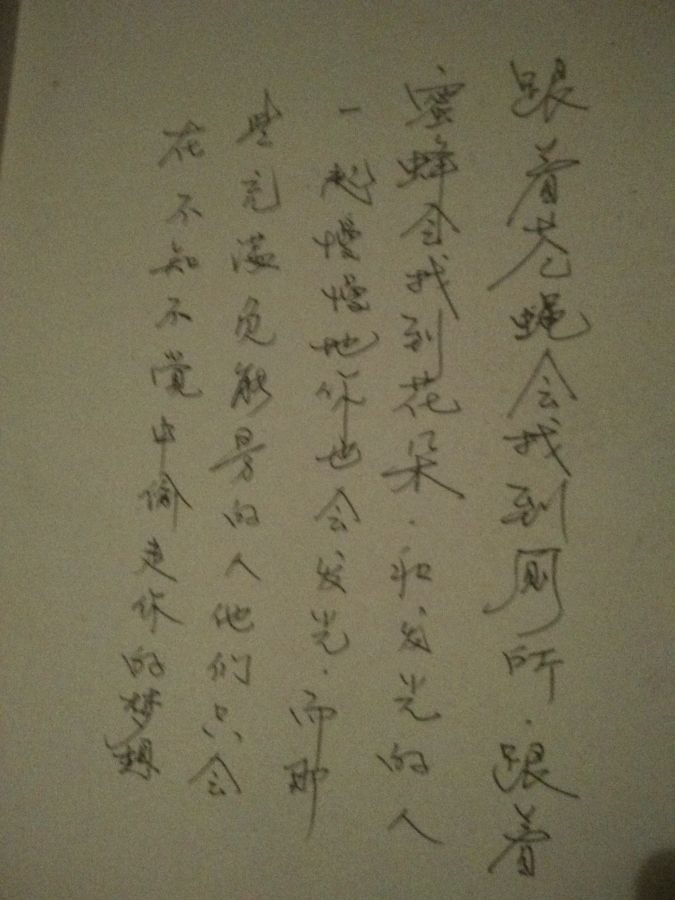 跟着苍蝇会找到厕所.跟着
蜜蜂会找到花朵.和发光的人
一起慢慢地你也会发光.而那
些充满负能量的人他们只会
在不知不觉中偷走你的梦想